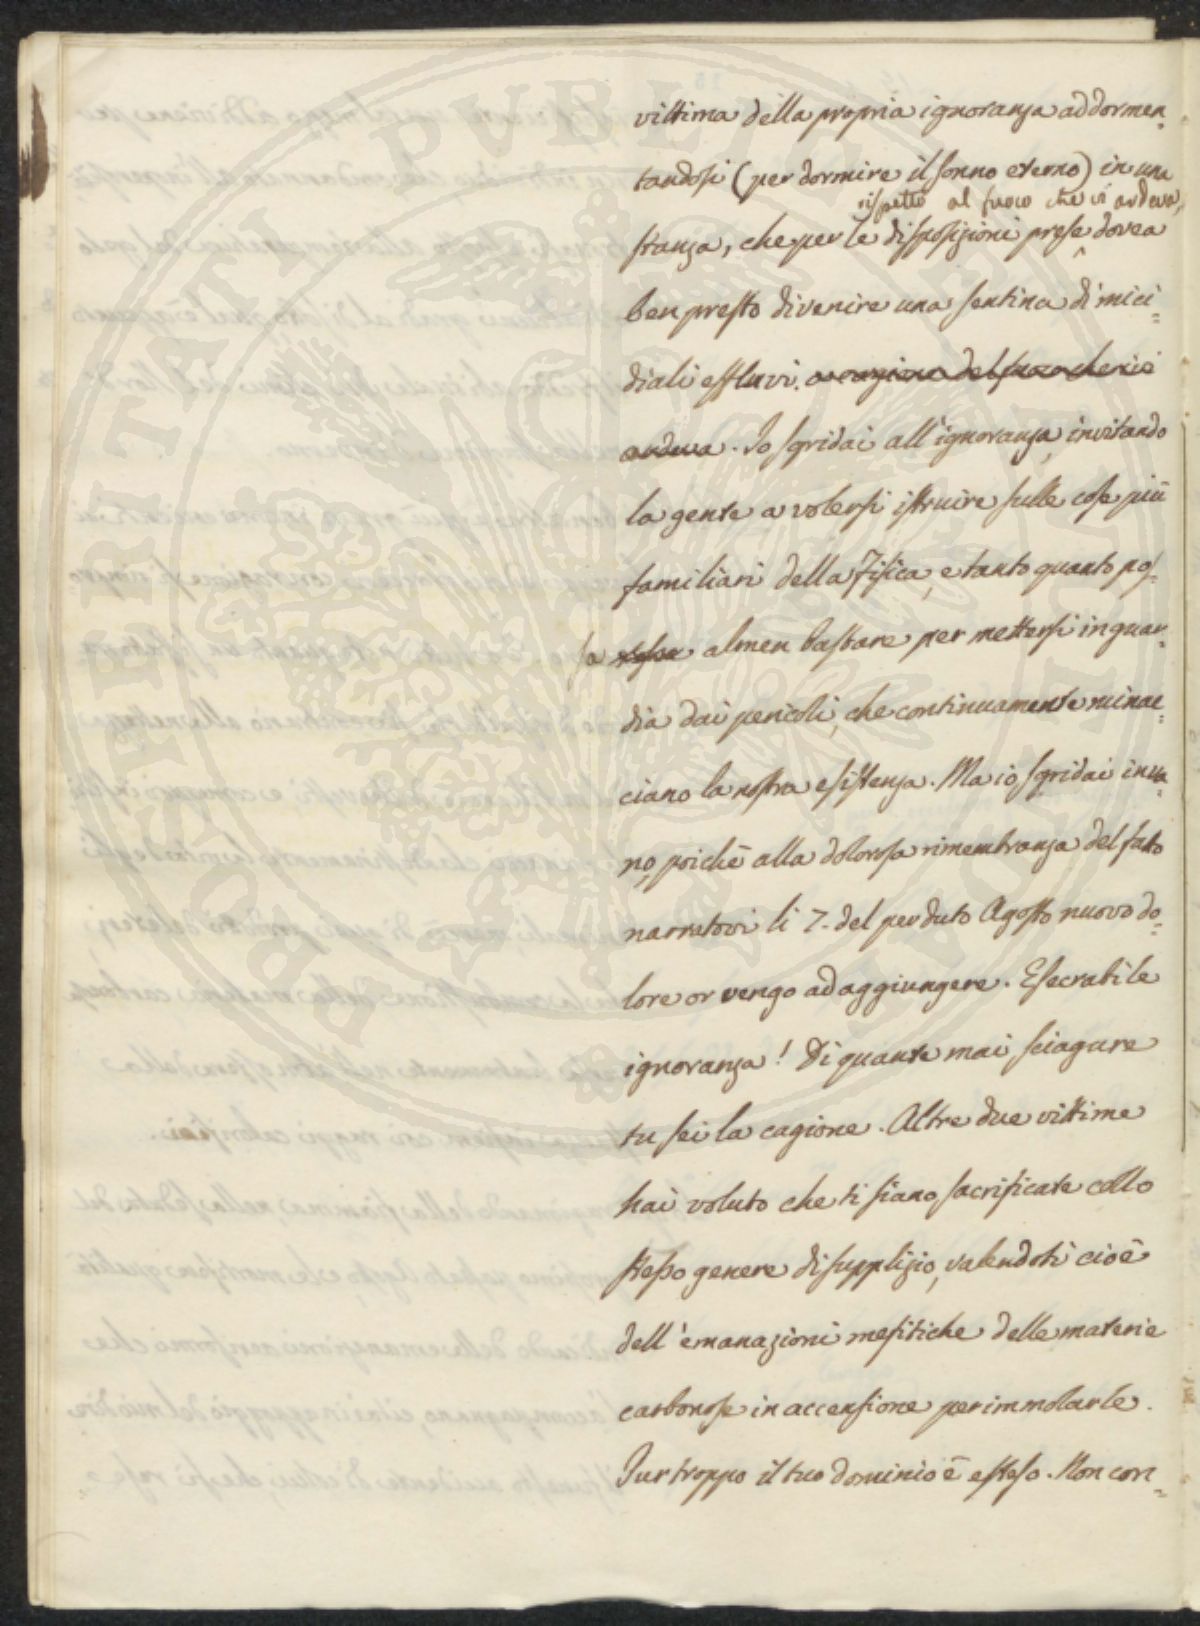 vittima della propria ignoranza addormen=
tandosi (per dormire il sonno eterno) in una
rispetto al fuoco che vi ardeva,
stanza, che per le disposizioni prese dovea
ben presto divenire una sentina di mici=
diali effluvi. a cagione del fuoco che vi ci
ardeva. Io sgridai all'ignoranza, invitando
la gente a volersi istruire sulle cose più
familiari della Fisica, e tanto quanto pos=
sa almen bastare per mettersi in guar=
dia dai pericoli, che continuamente minac=
ciano la nostra esistenza. Ma io sgridai inva=
no, poichè alla dolorosa rimembranza del fatto
narratovi li 7. del perduto Agosto nuovo do=
lore or vengo ad aggiungere. Esecrabile
ignoranza! Di quante mai sciagure
tu sei la cagione. Altre due vittime
hai voluto che ti siano sacrificate collo
stesso genere di supplizio, valendoti cioè
dell'emanazioni mefitiche delle materie
carbonose in accensione per immolarle.
Pur troppo il tuo dominio è esteso. Non con=
PERITATI
PVBLIC